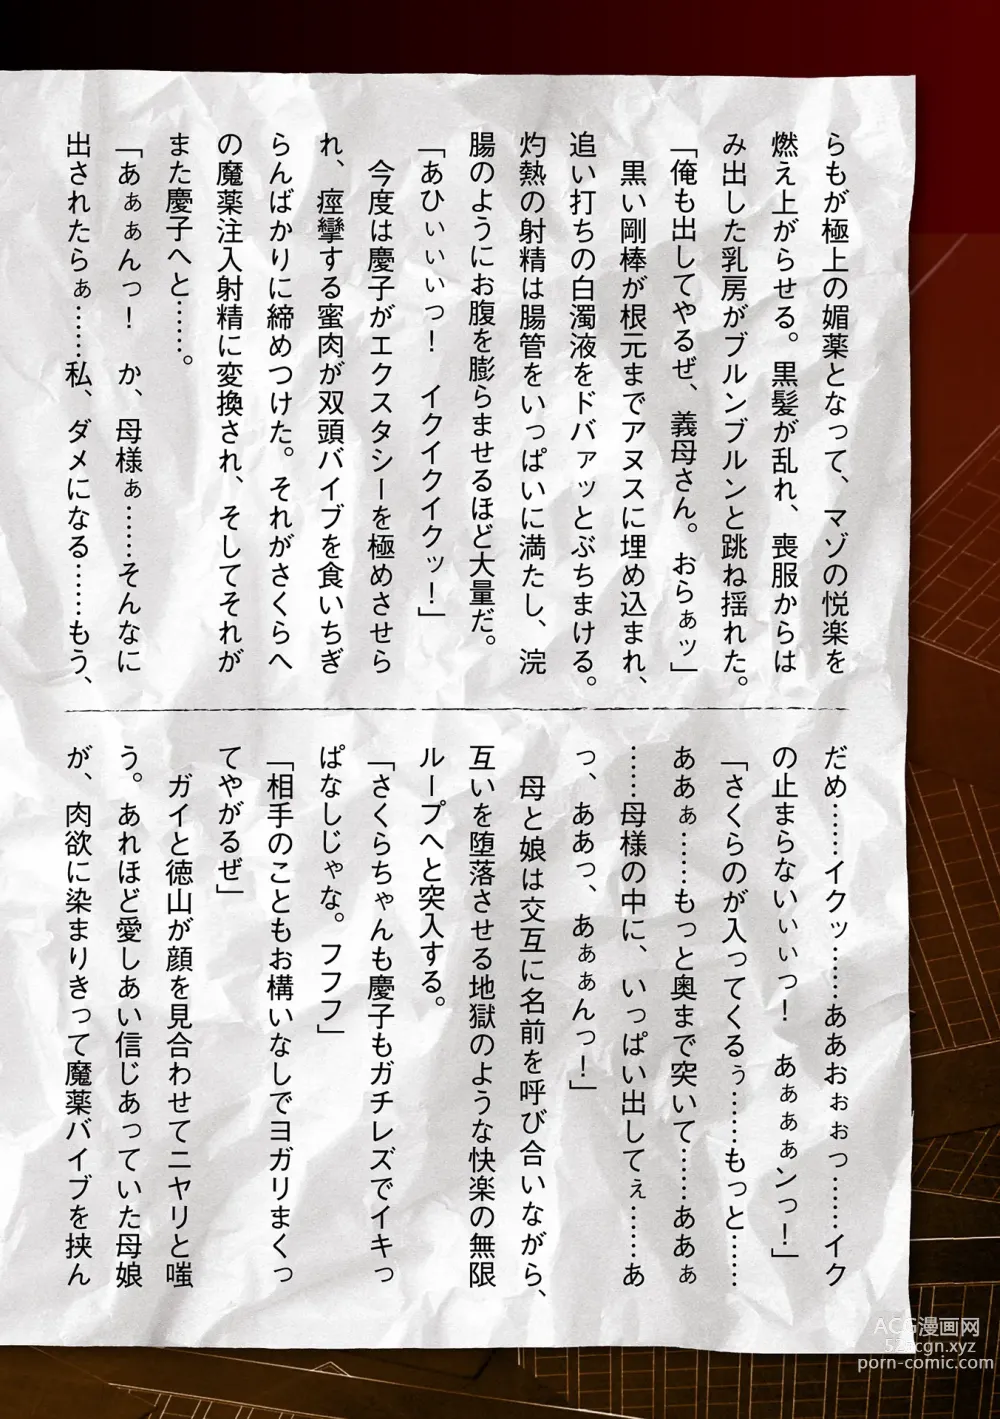 らもが極上の媚薬となって、マゾの悦楽を
燃え上がらせる。黒髪が乱れ、喪服からは
み出した乳房がブルンブルンと跳ね揺れた。
「俺も出してやるぜ、義母さん。おらぁッ」
黒い剛棒が根元までアヌスに埋め込まれ、
追い打ちの白濁液をドバァッとぶちまける。
灼熱の射精は腸管をいっぱいに満たし、浣
腸のようにお腹を膨らませるほど大量だ。
「あひぃぃぃっ！　イクイクイクッ！」
今度は慶子がエクスタシーを極めさせら
れ、痙攣する蜜肉が双頭バイブを食いちぎ
らんばかりに締めつけた。それがさくらへ
の魔薬注入射精に変換され、そしてそれが
また慶子へと……。
「あぁぁんっ！　か、母様ぁ……そんなに
出されたらぁ……私、ダメになる……もう、
だめ……イクッ……ああおぉぉっ……イク
の止まらないぃぃっ！　あぁぁぁンっ！」
「さくらのが入ってくるぅ……もっと……
ああぁ……もっと奥まで突いて……ああぁ
……母様の中に、いっぱい出してぇ……あ
っ、ああっ、あぁぁんっ！」
母と娘は交互に名前を呼び合いながら、
互いを堕落させる地獄のような快楽の無限
ループへと突入する。
「さくらちゃんも慶子もガチレズでイキっ
ぱなしじゃな。フフフ」
「相手のこともお構いなしでヨガリまくっ
てやがるぜ」
ガイと徳山が顔を見合わせてニヤリと嗤
う。あれほど愛しあい信じあっていた母娘
が、肉欲に染まりきって魔薬バイブを挟ん
ACG漫画网
52acgn.xyz
porn-comic.com